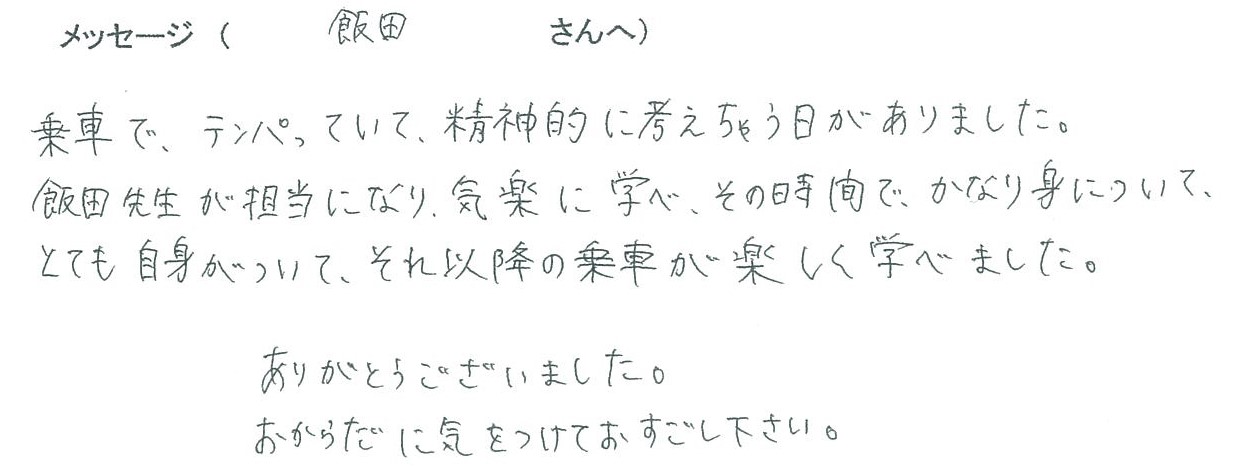 メッセージ（ 飯田 さんへ）
乗車で、テンパっていて、精神的に考えちゃう日がありました。
飯田先生が担当になり、気楽に学べ、その時間で、かなり身について、
とても自身がついて、それ以降の乗車が楽しく学べました。
ありがとうございました。
おからだに気をつけておすごし下さい。